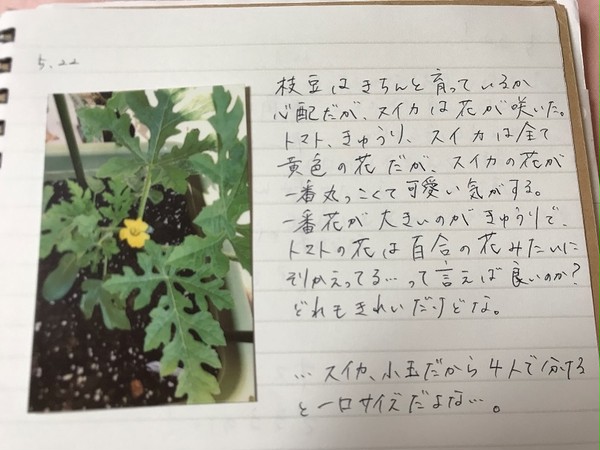 5.22
枝豆はきちんと育っているか
心配だが、スイカは花が咲いた。
トマト、きゅうり、スイカは全て
黄色の花だが、スイカの花が
一番丸っこくて可愛い気がする。
一番花が大きいのがきゅうりで、
トマトの花は百合の花みたいに
そりかえってる…って言えば良いのか?
どれもきれいだけどな。
…スイカ、小玉だから4人で分ける
と一口サイズだよな…。